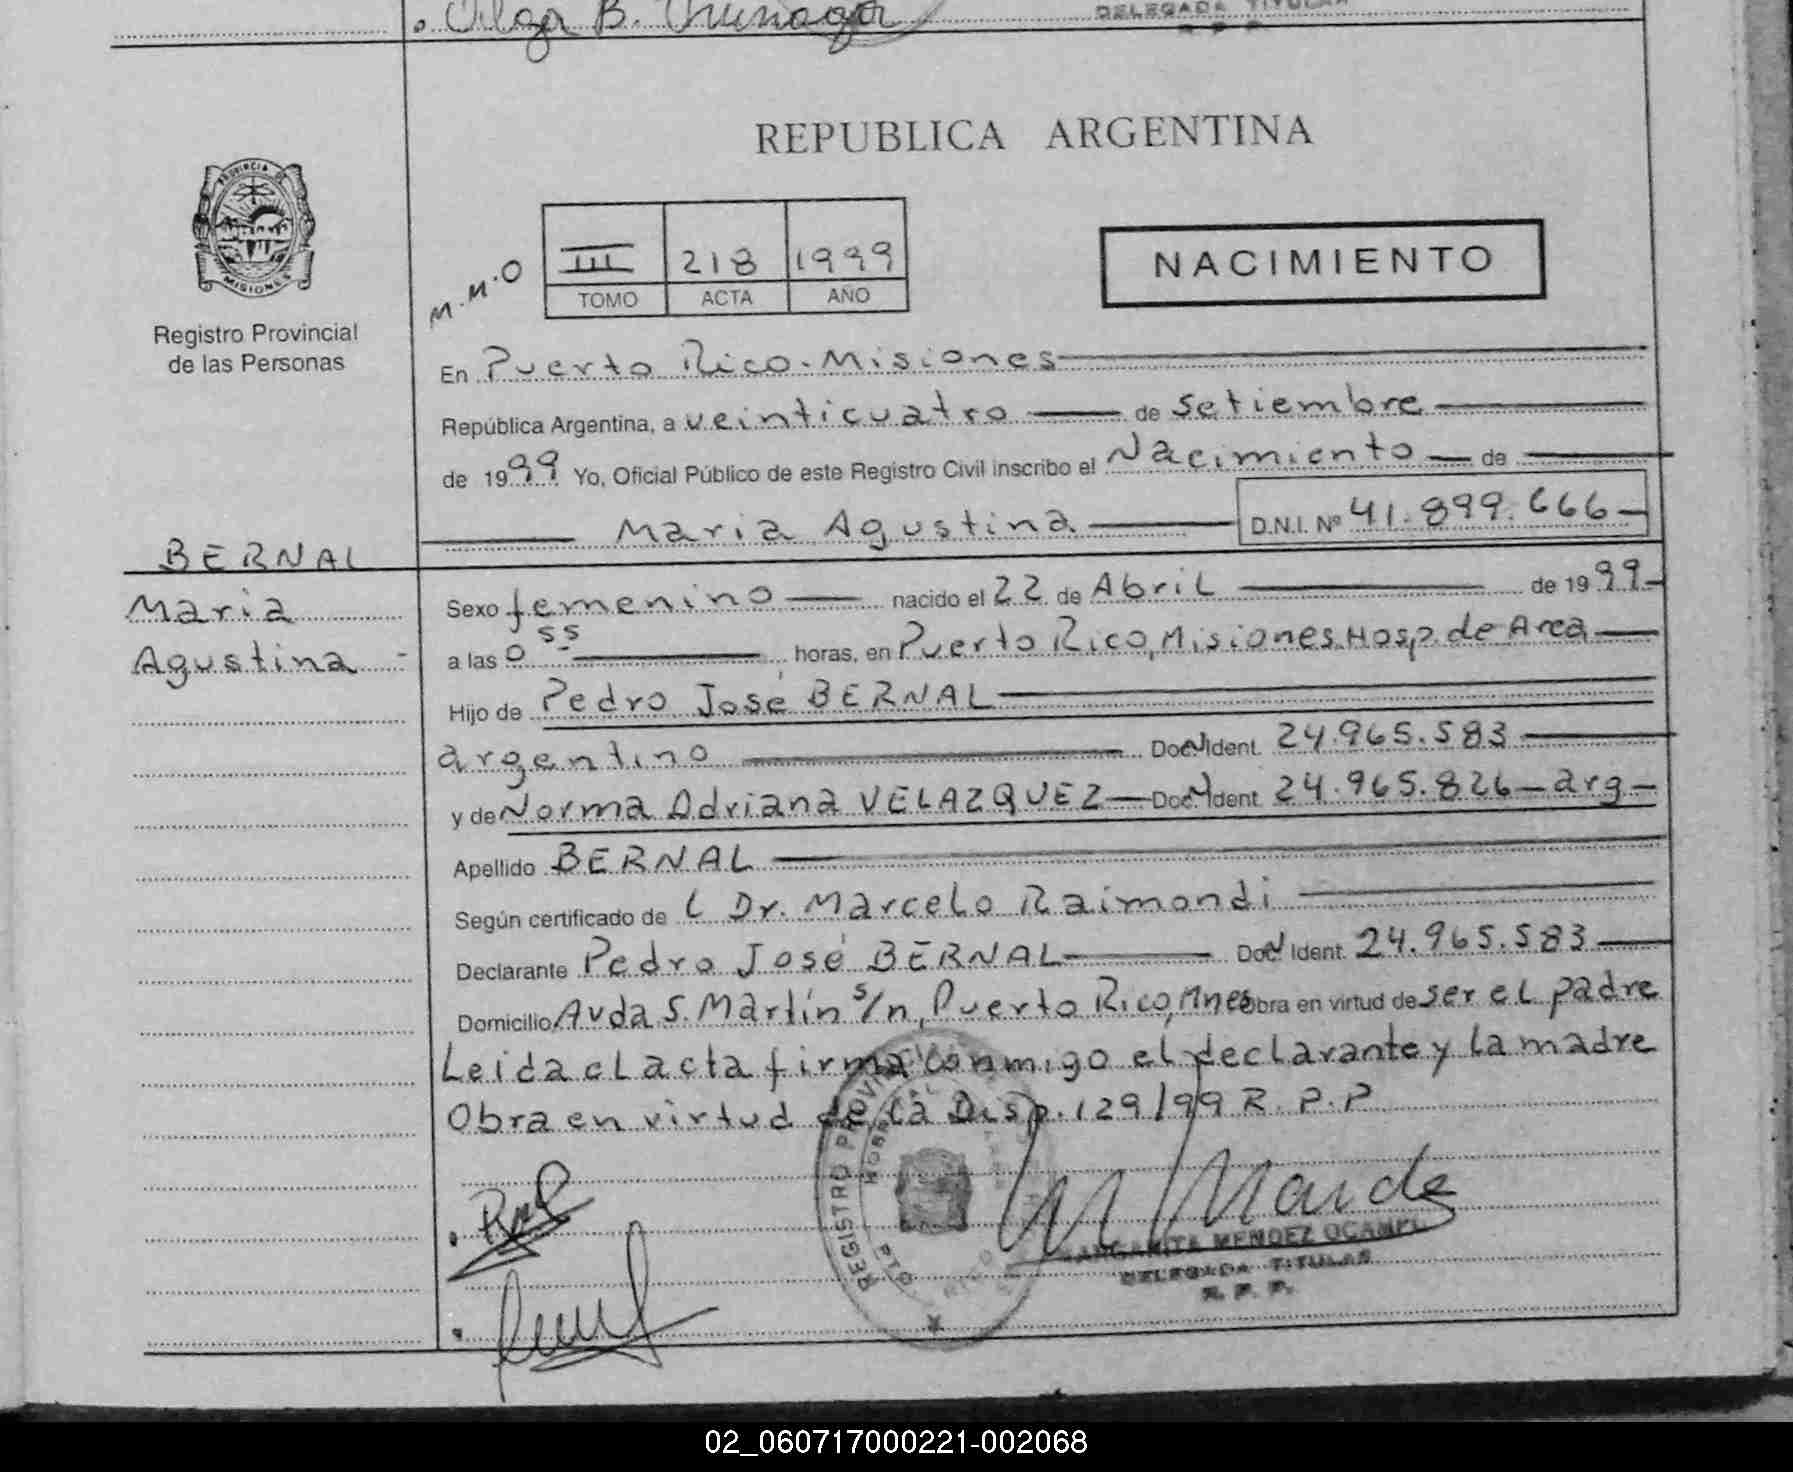 Olga B.
DELEGADA TITULAR
REPUBLICA ARGENTINA
PROVINCIA DE
MISIONES
Registro Provincial
de las Personas
M.M.O
III 218 1999
TOMO ACTA AÑO
NACIMIENTO
En Puerto Rico. Misiones
República Argentina, a veinticuatro de Setiembre
de 1999 Yo, Oficial Público de este Registro Civil inscribo el Nacimiento de
Maria Agustina D.N.I. Nº 41.899.666
BERNAL
Maria
Agustina
Sexo femenino nacido el 22 de Abril de 1999
a las 0 55 horas, en Puerto Rico, Misiones. Hosp. de Area
Hijo de Pedro José BERNAL
argentino Doc. Ident. 24.965.583
y de Norma Adriana VELAZQUEZ Doc. Ident. 24.965.826 - arg -
Apellido BERNAL
Según certificado de L Dr. Marcelo Raimondi
Declarante Pedro José BERNAL Doc. Ident. 24.965.583
Domicilio Avda S. Martín s/n, Puerto Rico, Mnes Obra en virtud de ser el padre
Leida el acta firma conmigo el declarante y la madre
Obra en virtud de la Disp. 129/99 R.P.P
REGISTRO PROVINCIAL
PTO RICO
MARGARITA MENDEZ OCAMPO
DELEGADA TITULAR
R. P. P.
02_060717000221-002068